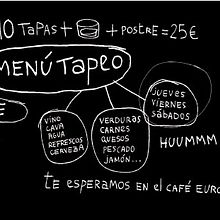 10 TAPAS + + POSTRE = 25€
MENÚ TAPEO
E
JUEVES
VIERNES
SÁBADOS
VINO
CAVA
AGUA
REFRESCOS
CERVEZA
VERDURAS
CARNES
QUESOS
PESCADO
JAMÓN...
HUUMMM
TE ESPERAMOS EN EL CAFÉ EURO